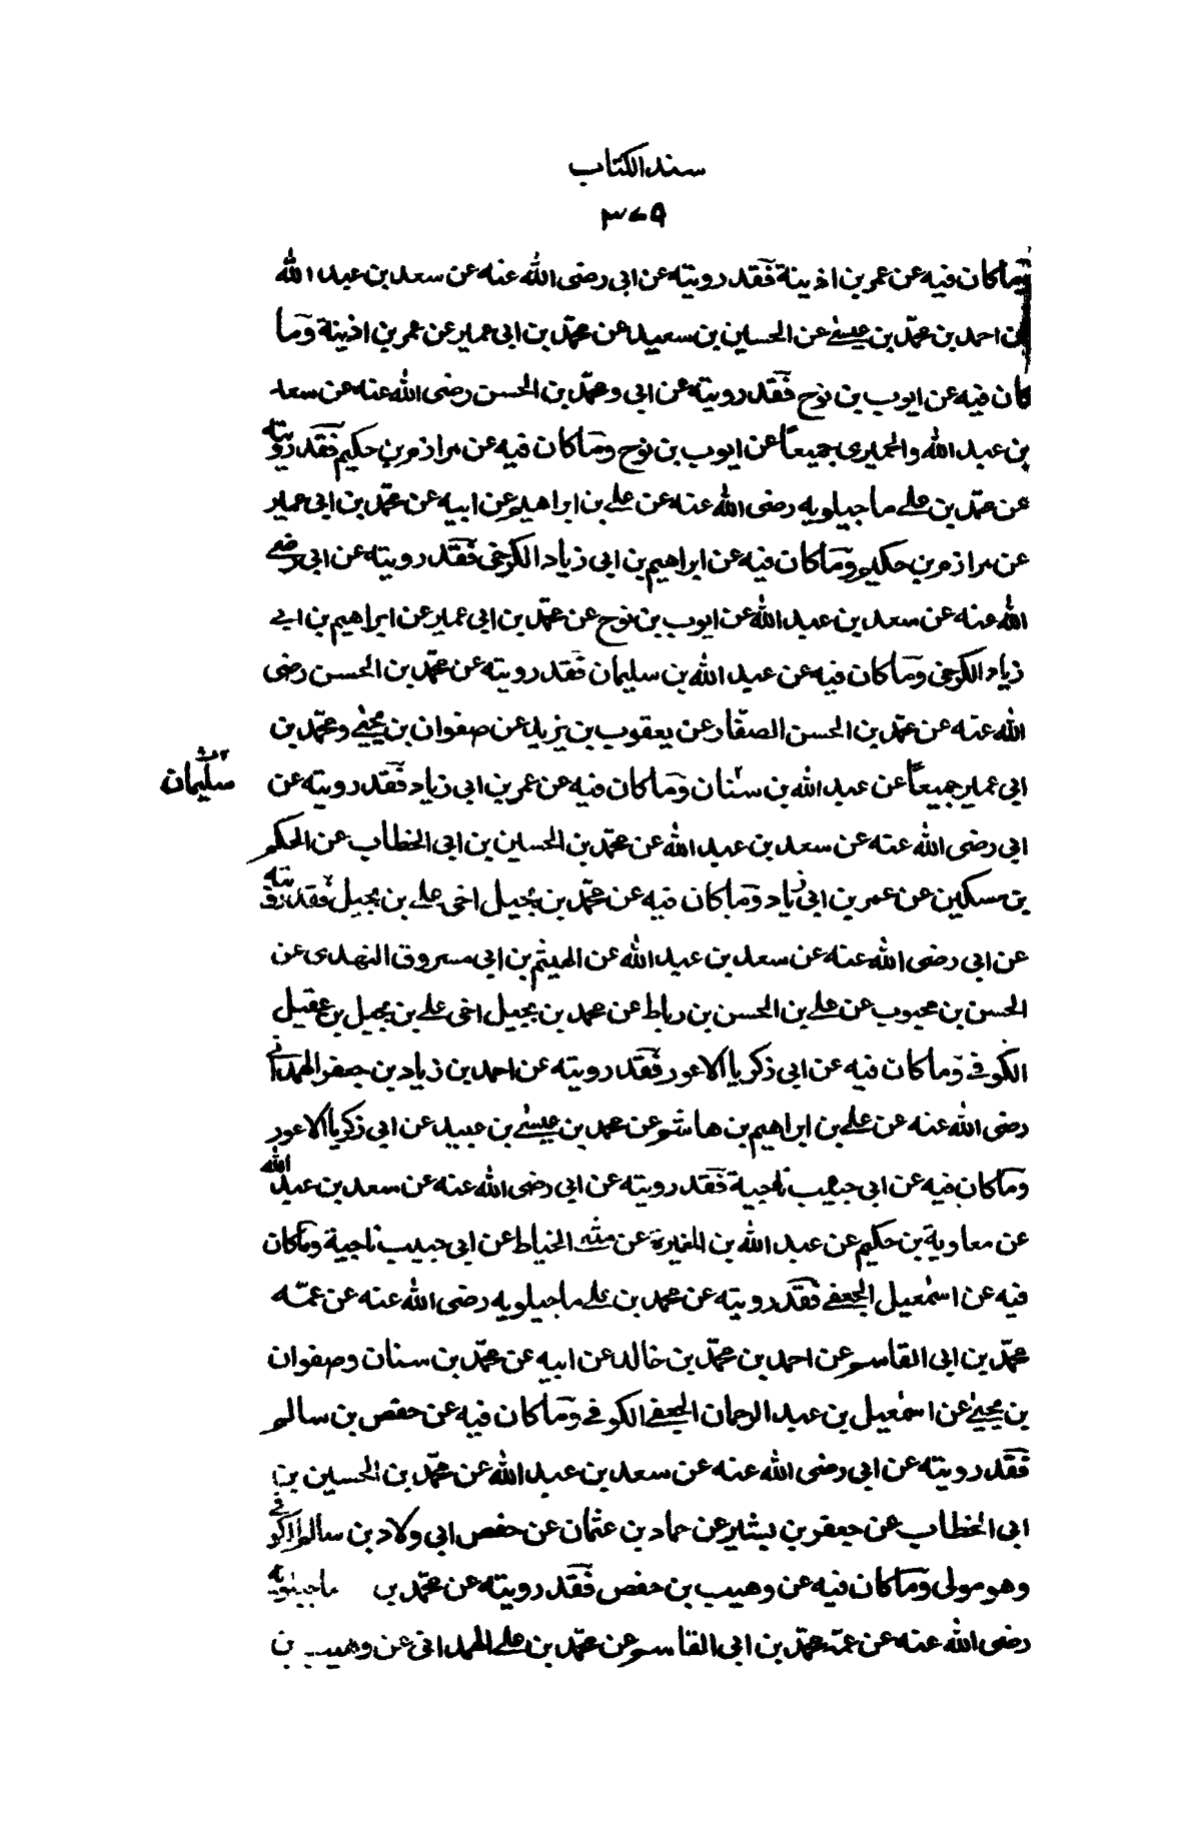 سند الكتاب
٣٧٩
وما كان فيه عن عمر بن اذينة فقد رويته عن ابى رضى الله عنه عن سعد بن عبد الله
عن احمد بن محمّد بن عيسى عن الحسين بن سعيد عن محمّد بن ابى عمير عن عمر بن اذينة وما
كان فيه عن ايوب بن نوح فقد رويته عن ابى ومحمّد بن الحسن رضى الله عنه عن سعد
بن عبد الله والحميرى جميعاً عن ايوب بن نوح وما كان فيه عن مرازم بن حكيم فقد رويته
عن محمّد بن على ماجيلويه رضى الله عنه عن على بن ابراهيم عن ابيه عن محمّد بن ابى عمير
عن مرازم بن حكيم وما كان فيه عن ابراهيم بن ابى زياد الكرخى فقد رويته عن ابى رضى
الله عنه عن سعد بن عبد الله عن ايوب بن نوح عن محمّد بن ابى عمير عن ابراهيم بن ابى
زياد الكرخى وما كان فيه عن عبد الله بن سليمان فقد رويته عن محمّد بن الحسن رضى
الله عنه عن محمّد بن الحسن الصفّار عن يعقوب بن يزيد عن صفوان بن يحيى ومحمّد بن
ابى عمير جميعاً عن عبد الله بن سنان وما كان فيه عن عمر بن ابى زياد فقد رويته عن
سليمان
ابى رضى الله عنه عن سعد بن عبد الله عن محمّد بن الحسين بن ابى الخطاب عن الحكم
بن مسكين عن عمر بن ابى زياد وما كان فيه عن محمّد بن بجيل اخى على بن بجيل فقد رويته
عن ابى رضى الله عنه عن سعد بن عبد الله عن الهيثم بن ابى مسروق النهدى عن
الحسن بن محبوب عن على بن الحسن بن رباط عن محمد بن بجيل اخى على بن بجيل بن عقيل
الكوفى وما كان فيه عن ابى زكريا الاعور فقد رويته عن احمد بن زياد بن جعفر الهمدانى
رضى الله عنه عن على بن ابراهيم بن هاشم عن محمد بن عيسى بن عبيد عن ابى زكريا الاعور
وما كان فيه عن ابى حبيب ناجية فقد رويته عن ابى رضى الله عنه عن سعد بن عبد الله
عن معاوية بن حكيم عن عبد الله بن المغيرة عن مثنى الخياط عن ابى حبيب ناجية وما كان
فيه عن اسمعيل الجعفى فقد رويته عن محمد بن على ماجيلويه رضى الله عنه عن عمّه
محمّد بن ابى القاسم عن احمد بن محمّد بن خالد عن ابيه عن محمّد بن سنان وصفوان
بن يحيى عن اسمعيل بن عبد الرحمان الجعفى الكوفى وما كان فيه عن حفص بن سالم
فقد رويته عن ابى رضى الله عنه عن سعد بن عبد الله عن محمّد بن الحسين بن
ابى الخطاب عن جعفر بن بشير عن حماد بن عثمان عن حفص ابى ولاد بن سالم الكوفى
وهو مولى وما كان فيه عن وهيب بن حفص فقد رويته عن محمّد بن ماجيلويه
رضى الله عنه عن عمّه محمّد بن ابى القاسم عن محمّد بن على الهمدانى عن وهيب بن